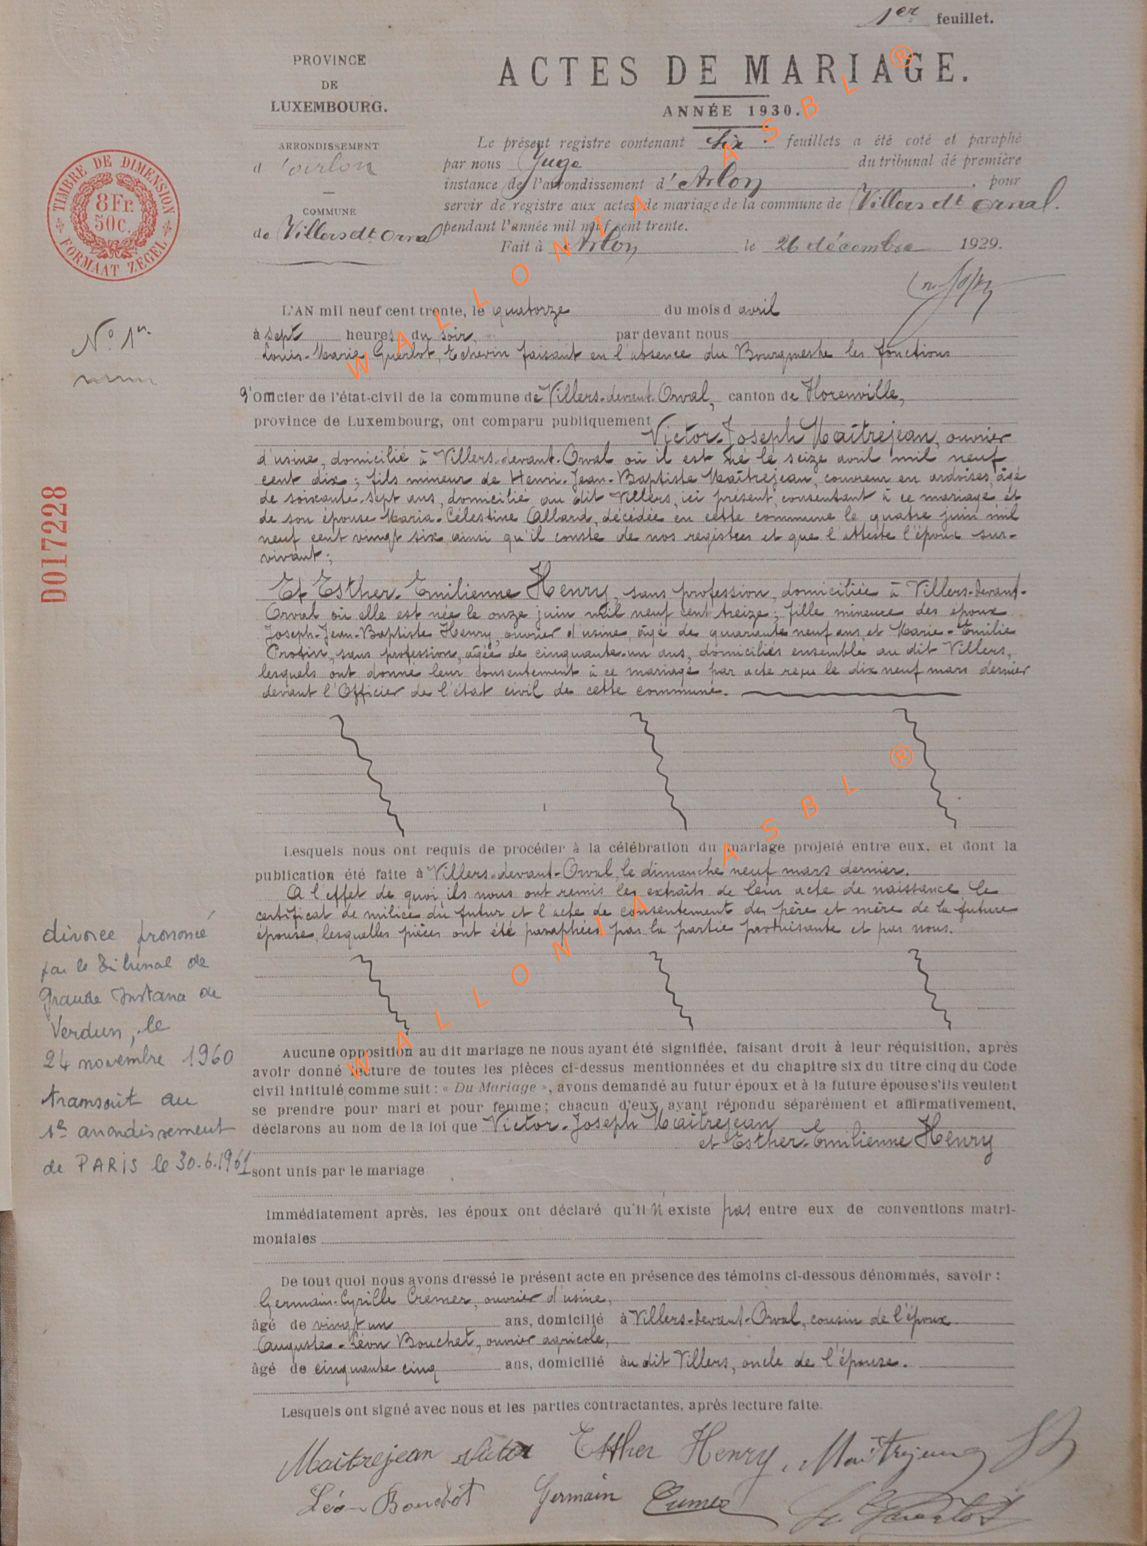 1er feuillet.
PROVINCE
DE
LUXEMBOURG.
ARRONDISSEMENT
d'Arlon
COMMUNE
de Villers dt Orval
TIMBRE DE DIMENSION
8 Fr. 50c.
FORMAAT ZEGEL
ACTES DE MARIAGE.
ANNÉE 1930.
Le présent registre contenant six feuillets a été coté et paraphé
par nous Juge du tribunal de première
instance de l'arrondissement d'Arlon, pour
servir de registre aux actes de mariage de la commune de Villers dt Orval.
pendant l'année mil neuf cent trente.
Fait à Arlon le 26 décembre 1929.
No 1er
D017228
L'AN mil neuf cent trente, le quatorze du mois d avril
à sept heures du soir, par devant nous
Louis-Marie Guerlot, Echevin faisant en l'absence du Bourgmestre les fonctions
d'officier de l'état-civil de la commune de Villers-devant-Orval, canton de Florenville,
province de Luxembourg, ont comparu publiquement Victor-Joseph Maîtrejean, ouvrier
d'usine, domicilié à Villers-devant-Orval où il est né le seize avril mil neuf
cent dix; fils mineur de Henri-Jean-Baptiste Maîtrejean, couvreur en ardoises, âgé
de soixante-sept ans, domicilié au dit Villers, ici présent, consentant à ce mariage, et
de son épouse Maria-Célestine Allard, décédée en cette commune le quatre juin mil
neuf cent vingt six, ainsi qu'il conste de nos registres et que l'atteste l'époux sur-
vivant;
Et Esther-Emilienne Henry, sans profession, domiciliée à Villers-devant-
Orval où elle est née le onze juin mil neuf cent treize; fille mineure des époux
Joseph-Jean-Baptiste Henry, ouvrier d'usine, âgé de quarante neuf ans, et Marie-Emilie
sans profession, âgée de cinquante-un ans, domiciliés ensemble au dit Villers,
lesquels ont donné leur consentement à ce mariage par acte reçu le dix neuf mars dernier
devant l'Officier de l'état civil de cette commune.
Lesquels nous ont requis de procéder à la célébration du mariage projeté entre eux, et dont la
publication été faite à Villers-devant-Orval, le dimanche neuf mars dernier.
A l'effet de quoi, ils nous ont remis les extraits de leur acte de naissance le
certificat de milice du futur et l'acte de consentement des père et mère de la future
épouse, lesquelles pièces ont été paraphées par la partie produisante et par nous.
divorce prononcé
par le Tribunal de
Grande Instance de
Verdun, le
24 novembre 1960
transcrit au
1er arrondissement
de PARIS le 30.6.1961
Aucune opposition au dit mariage ne nous ayant été signifiée, faisant droit à leur réquisition, après
avoir donné lecture de toutes les pièces ci-dessus mentionnées et du chapitre six du titre cinq du Code
civil intitulé comme suit : « Du Mariage », avons demandé au futur époux et à la future épouse s'ils veulent
se prendre pour mari et pour femme; chacun d'eux ayant répondu séparément et affirmativement,
déclarons au nom de la loi que Victor-Joseph Maîtrejean
et Esther-Emilienne Henry
sont unis par le mariage
Immédiatement après, les époux ont déclaré qu'il n'existe pas entre eux de conventions matri-
moniales
De tout quoi nous avons dressé le présent acte en présence des témoins ci-dessous dénommés, savoir :
Germain-Cyrille Crémer, ouvrier d'usine,
âgé de vingt un ans, domicilié à Villers-devant-Orval, cousin de l'époux
Auguste-Léon Bouchet, ouvrier agricole,
âgé de cinquante cinq ans, domicilié au dit Villers, oncle de l'épouse.
Lesquels ont signé avec nous et les parties contractantes, après lecture faite.
Maitrejean Victor Esther Henry. Maîtrejean
Léon Bouchet Germain Cremer
WALLONIA ASBL ®
WALLONIA ASBL ®